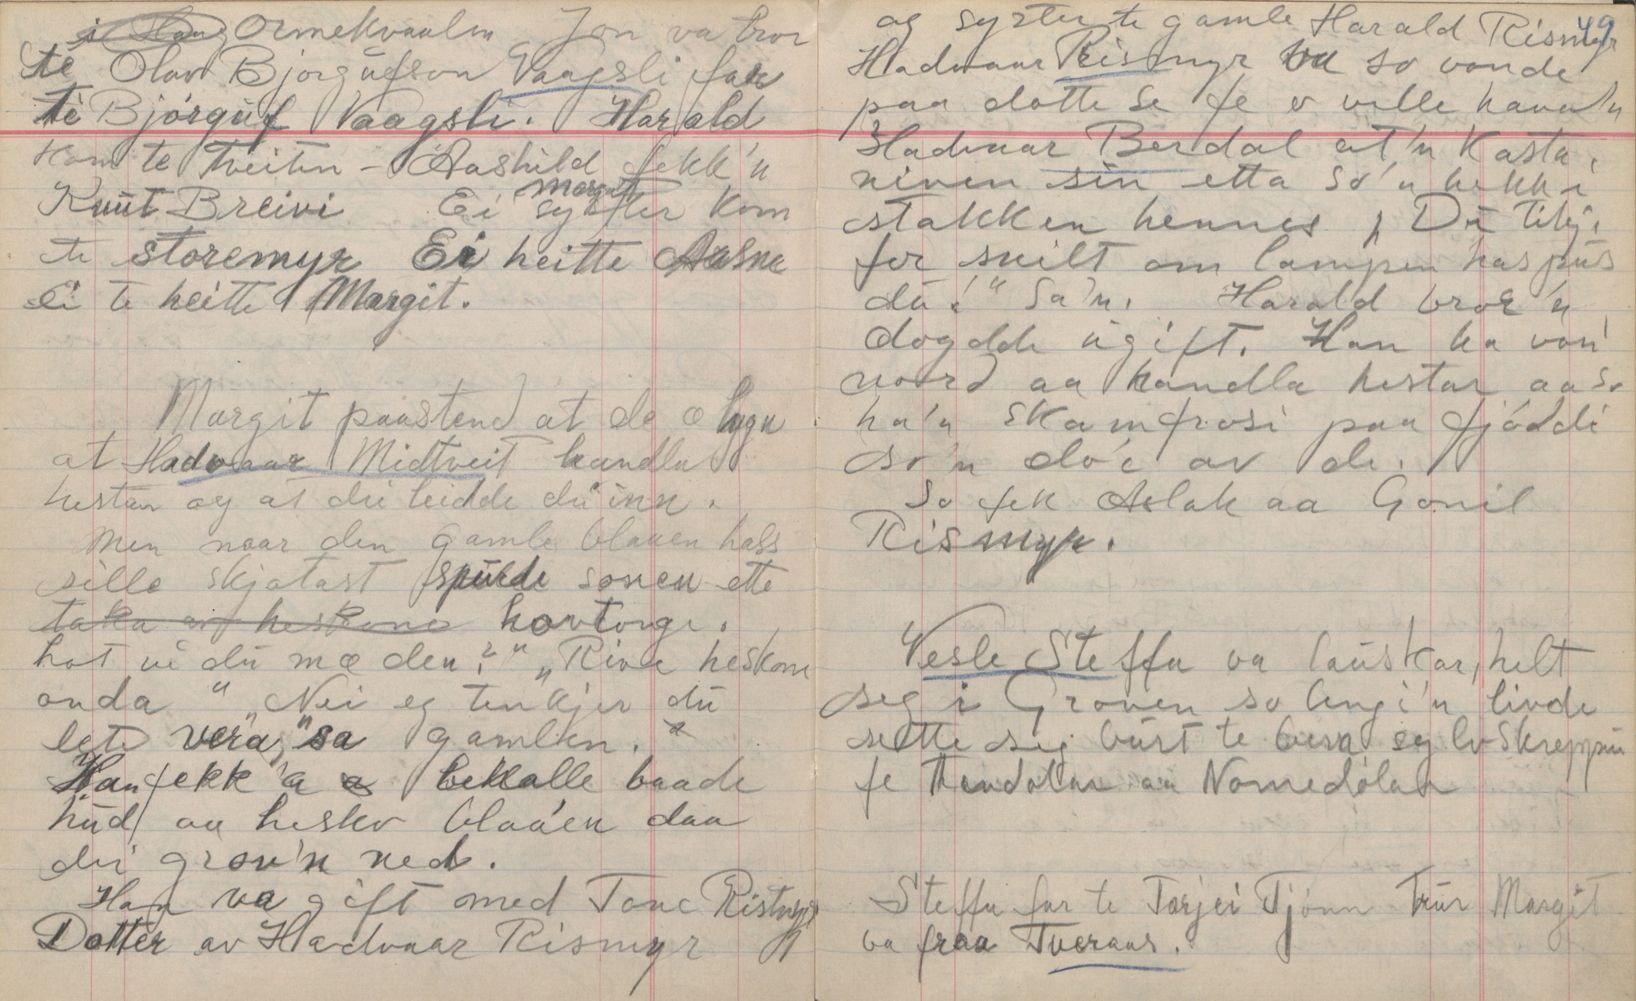 Ormekvaalen Jon va bror
te Olav Bjorgufson Vaagsli far
te Bjørgüf Vaagsli. Harald
kom te Tveiten - Aashild fekk'n
Knüt Breivi Ei syster Margit kom
te Storemyr Ei heitte Aasne
ei te heitte Margit.
Margit paastend at de æ lygn
at Hadvaar Midtveit handla
hestar og at dei leidde dei inn.
Men naar den gamle blaaen hass
sille skjotast spürde sonen ette
taka av heskone hovtonge.
hot vi dü mæ den?" "Riva heskone
onda" "Nei eg tenkjer dü
lete vera," sa gamlen.
Han fekk 'a behalle baade
hüd aa hesko blaa'en daa
dei grov'n ned.
Han va gift med Tone Rismyr
Dotter av Hadvaar Rismyr
49
og syster te gamle Harald Rismyr
Hadvaar Rismyr va so vonde
paa dotte se fe o ville hava'n
Hadvaar Berdal at'n kasta
niven sin etta so'n hekk i
stakken hennes, "Du tikje
for snilt om lampen haspüs
dü!" sa'n. Harald bror 'n
dogdde ügift. Han ha vori
noord aa handla hestar aa so
ha'n skamfrosi paa fjøddi
so'n do'e av de.
So fek Aslak aa Gonil
Rismyr.
Vesle Steffa va laüskar, helt
seg i Groven so lengi'n livde
sette seg bürt te bera eg lvskreppun
fe Tendølan aa Nomedølan
Steffa far te Torjei Tjønn trür Margit
va fraa Tveraas.